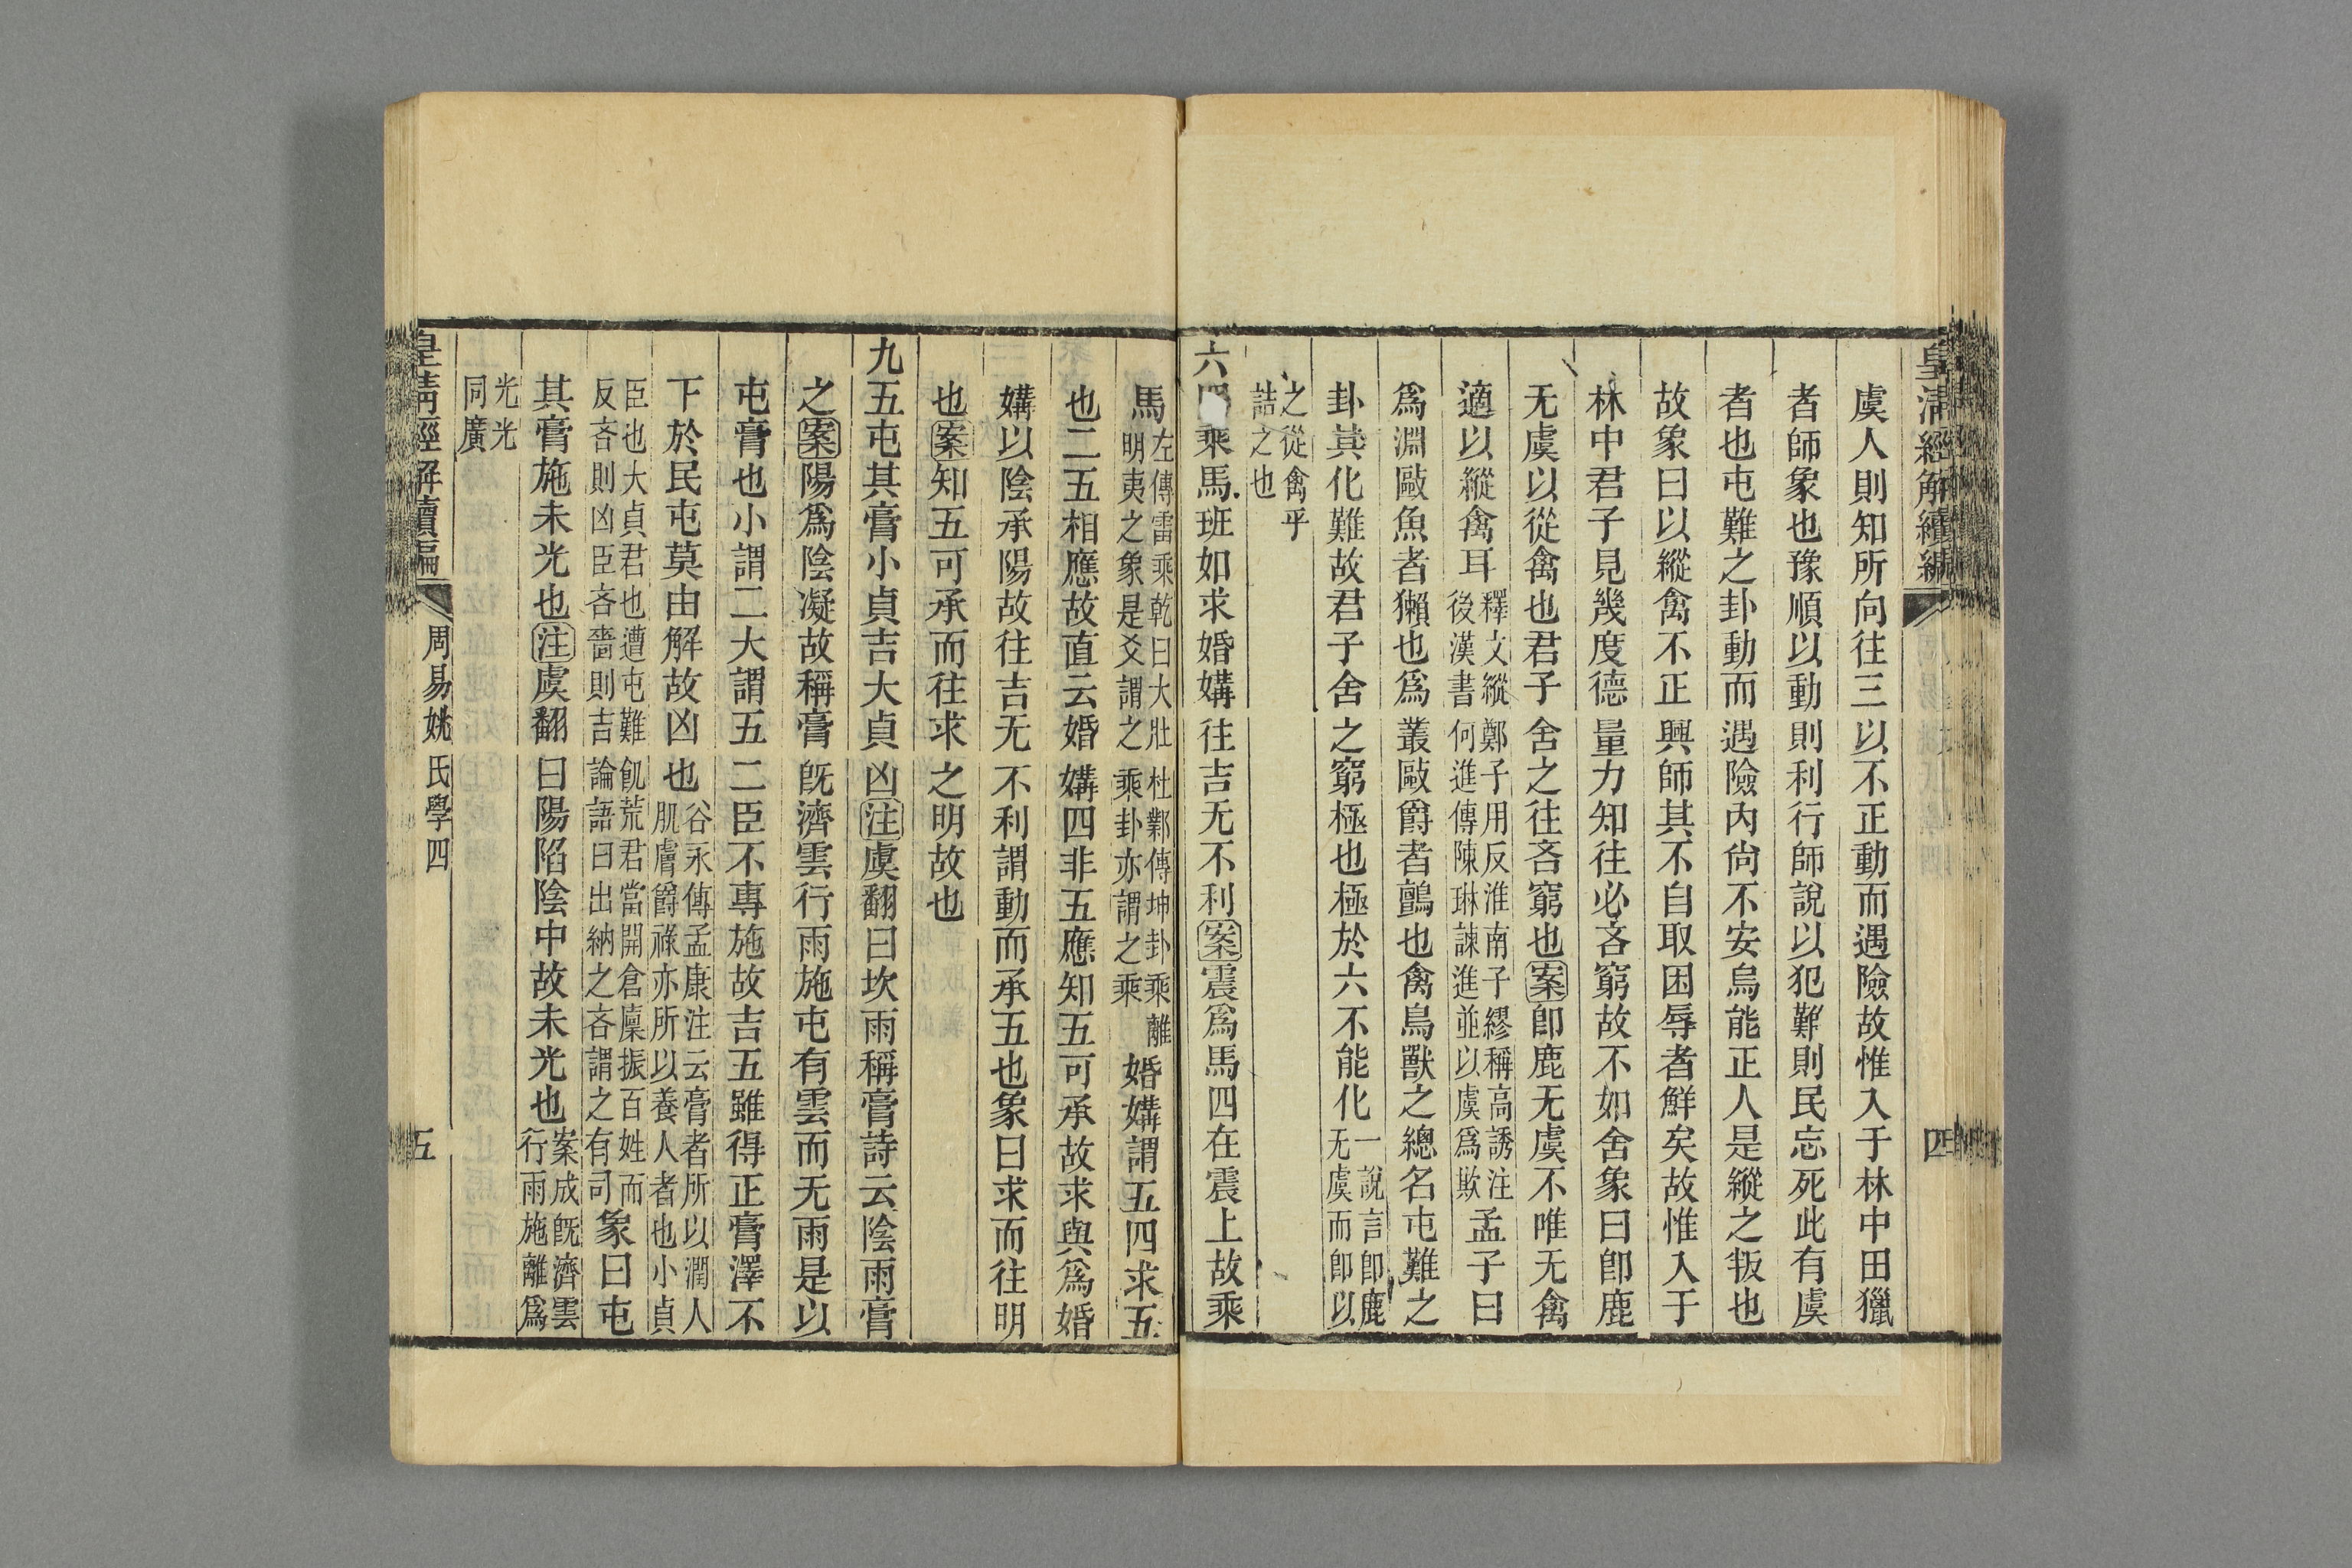 皇清經解續編
四
虞人則知所向往三以不正動而遇險故惟入于林中田獵
者師象也豫順以動則利行師說以犯難則民忘死此有虞
者也屯難之卦動而遇險內尙不安烏能正人是縱之叛也
故象曰以縱禽不正興師其不自取困辱者鮮矣故惟入于
林中君子見幾度德量力知往必吝窮故不如舍象曰卽鹿
无虞以從禽也君子舍之往吝窮也案卽鹿无虞不唯无禽
適以縱禽耳釋文縱鄭子用反淮南子繆稱高誘注後漢書何進傳陳琳諫進並以虞爲欺孟子曰
爲淵敺魚者獺也爲叢敺爵者鸇也禽鳥獸之總名屯難之
卦其化難故君子舍之窮極也極於六不能化一說言卽鹿无虞而卽以
之從禽乎詰之也
六乘馬班如求婚媾往吉无不利案震爲馬四在震上故乘
馬左傳雷乘乾曰大壯明夷之象是爻謂之杜鄴傳坤卦乘離乘卦亦謂之乘婚媾謂五四求五
也二五相應故直云婚媾四非五應知五可承故求與爲婚
媾以陰承陽故往吉无不利謂動而承五也象曰求而往明
也案知五可承而往求之明故也
九五屯其膏小貞吉大貞凶注虞翻曰坎雨稱膏詩云陰雨膏
之案陽爲陰凝故稱膏旣濟雲行雨施屯有雲而无雨是以
屯膏也小謂二大謂五二臣不專施故吉五雖得正膏澤不
下於民屯莫由解故凶也谷永傳孟康注云膏者所以潤人肌膚爵祿亦所以養人者也小貞
臣也大貞君也遭屯難飢荒君當開倉廩振百姓而反吝則凶臣吝嗇則吉論語曰出納之吝謂之有司象曰屯
其膏施未光也注虞翻曰陽陷陰中故未光也案成旣濟雲行雨施離爲
光光同廣
皇清經解續編
周易姚氏學四
五